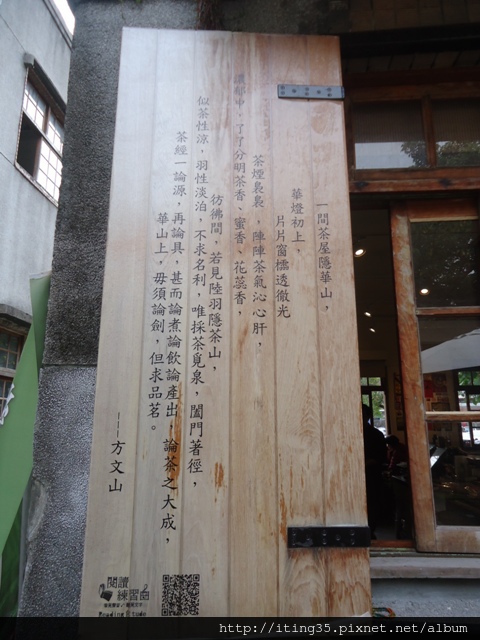 一間茶屋隱華山，
華燈初上，
片片窗櫺透徹光
茶煙裊裊，陣陣茶氣沁心肝，
濃郁中，了了分明茶香、蜜香、花蕊香，
彷彿間，若見陸羽隱茶山，
似茶性涼，羽性淡泊，不求名利，唯採茶覓泉，闔門著徑，
茶經一論源，再論具，甚而論煮論飲論產出，論茶之大成，
華山上，毋須論劍，但求品茗。
———方文山
閱讀
練習曲
Reading Etude
http://iting35.pixnet.net/album